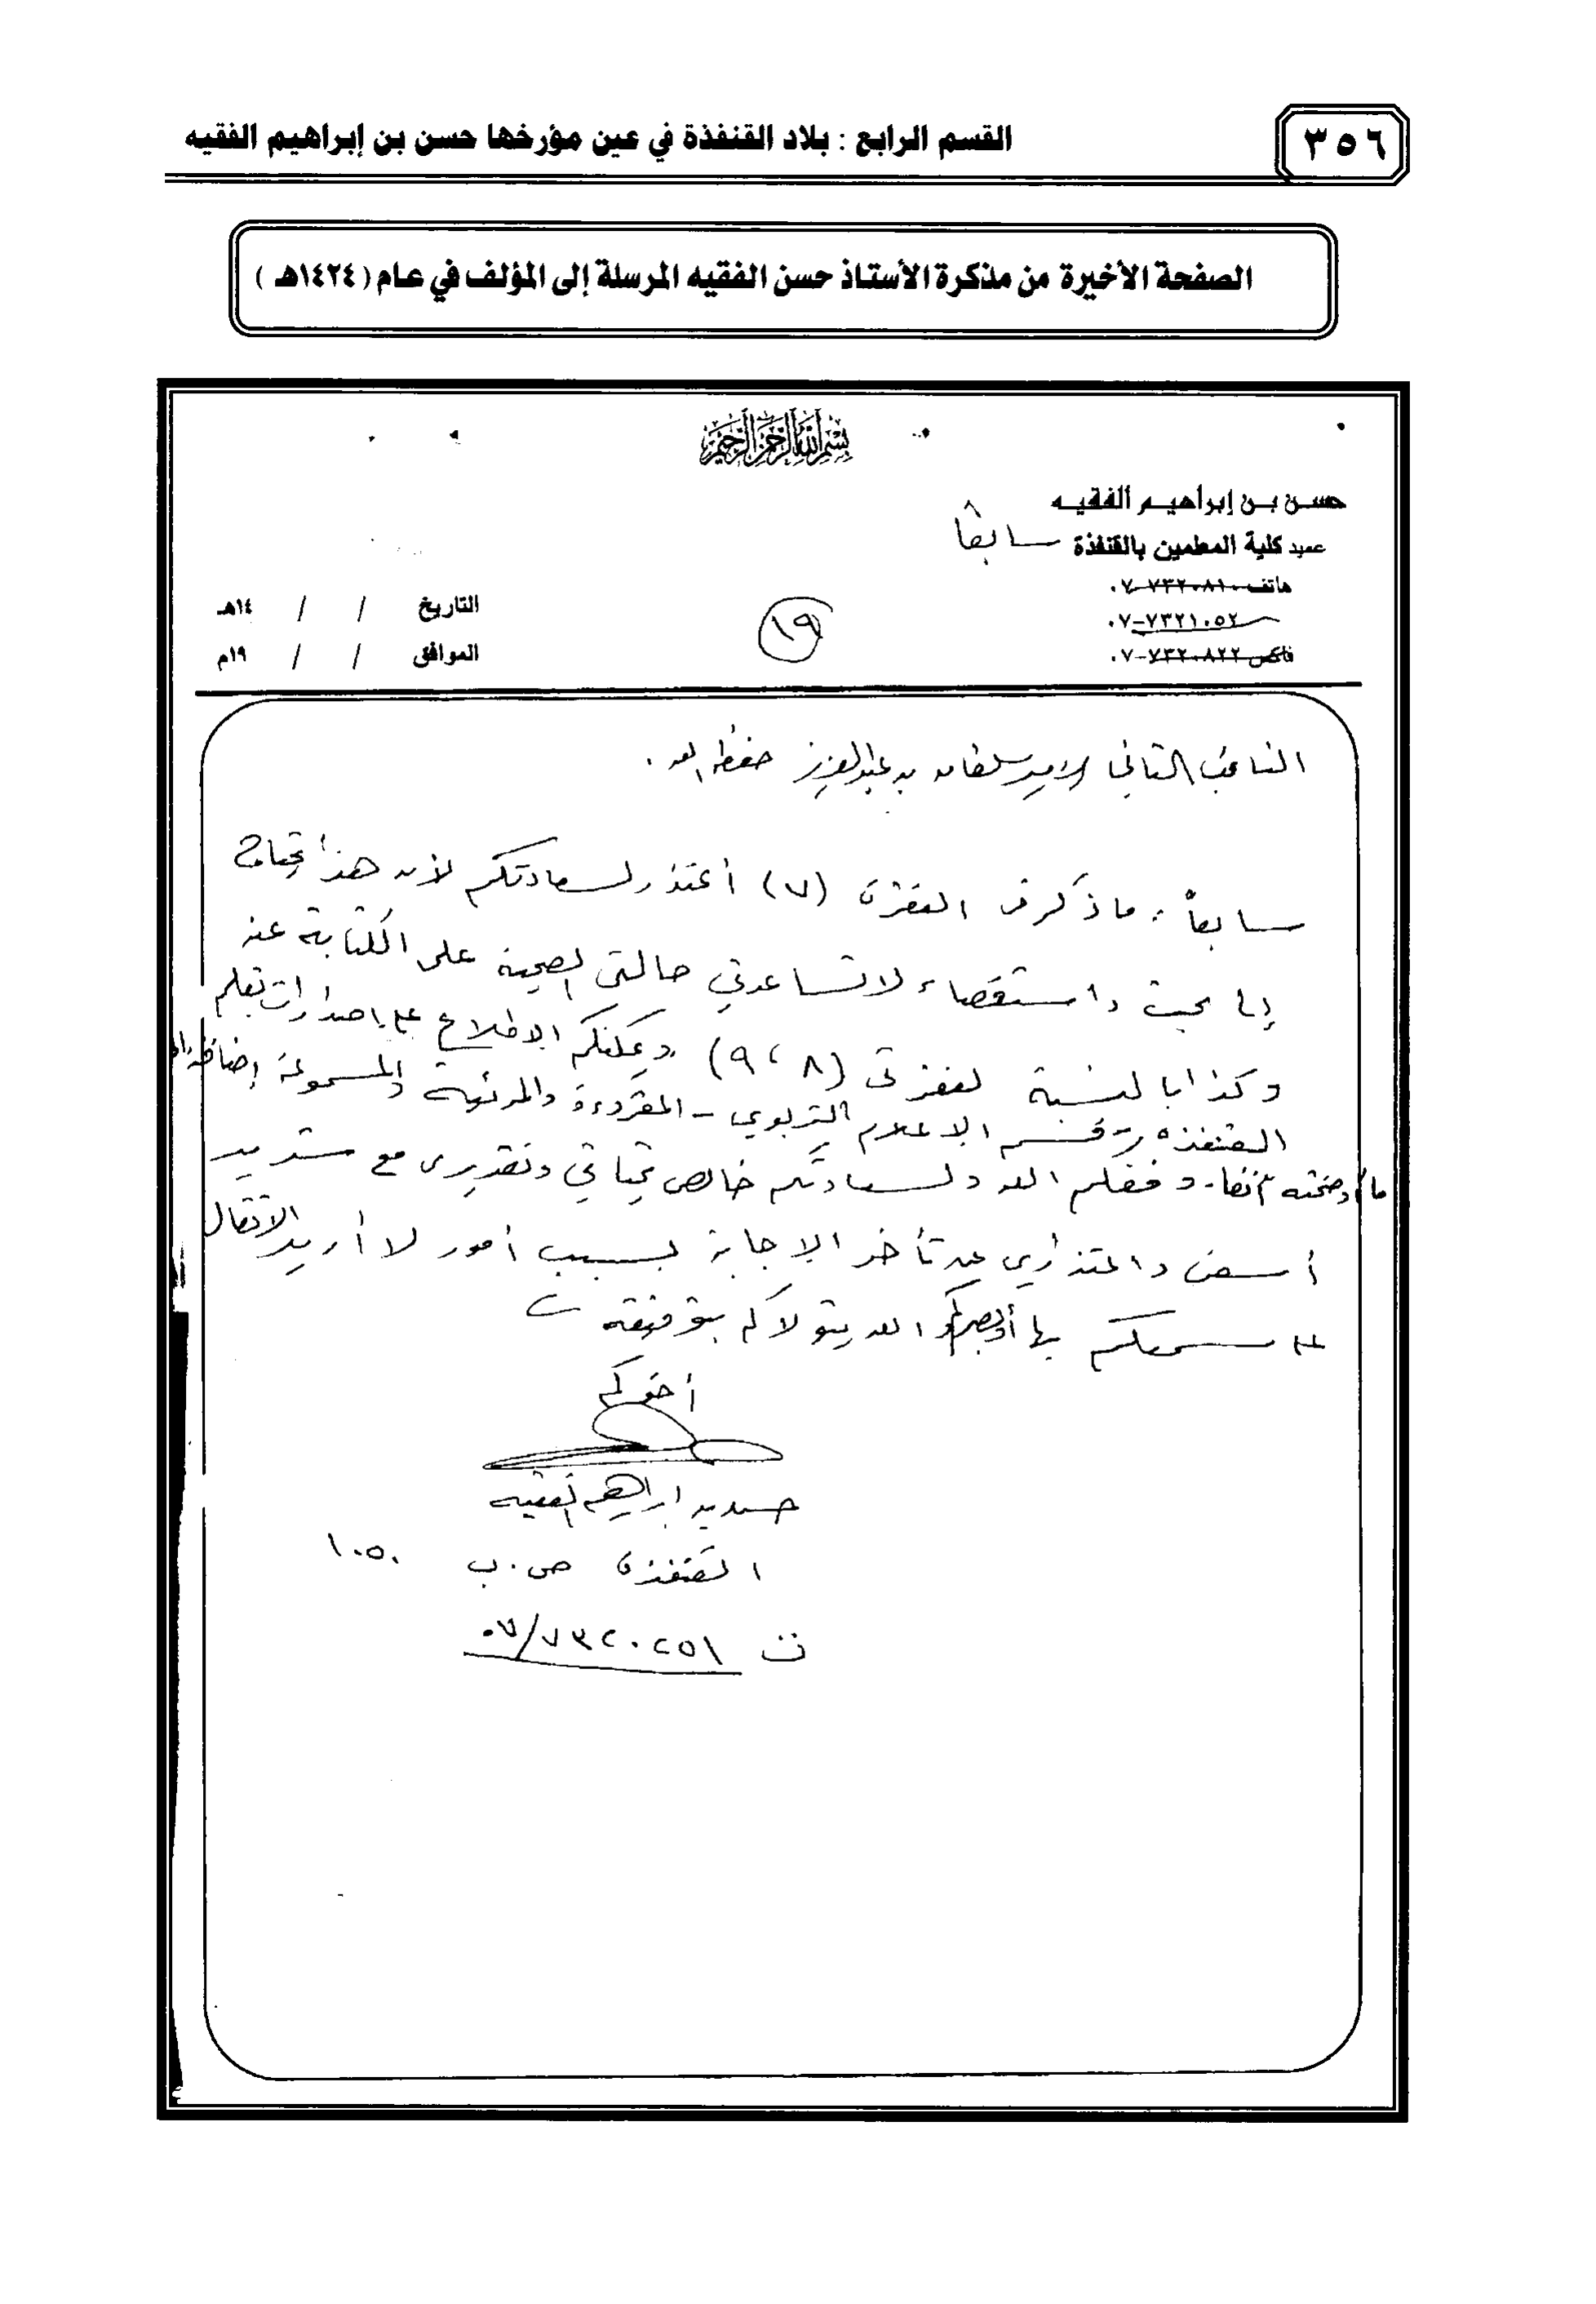 ٣٥٦
القسم الرابع : بلاد القنفذة في عين مؤرخها حسن بن إبراهيم الفقيه
الصفحة الأخيرة من مذكرة الأستاذ حسن الفقيه المرسلة إلى المؤلف في عام ( ١٤٢٤هـ )
بسم الله الرحمن الرحيم
حسن بن إبراهيم الفقيه
عميد كلية المعلمين بالقنفذة سابقاً
هاتف ٧٣٢٠٨١٠-٠٧
٧٣٢١٠٥٢-٠٧
فاكس ٧٣٢٠٨٢٢-٠٧
١٩
التاريخ / / ١٤هـ
الموافق / / ١٩م
النائب الثاني الأمير سلطان بن عبدالعزيز حفظه الله .
سابعاً : ما ذكر في الفقرة (٧) أعتذر لسعادتكم لأن هذا يحتاج
إلى بحث واستقصاء لا تساعدني حالتي الصحية على الكتابة عنه
وكذا بالنسبة لفقرتي (٨ ، ٩) ويمكنكم الاطلاع على إصدارات تعليم
القنفذة قسم الإعلام التربوي - المقروءة والمرئية والمسموعة إضافة إلى
ما أوضحته آنفا . وفقكم الله ولسعادتكم خالص تحياتي وتقديري مع شديد
أسفي واعتذاري عن تأخر الإجابة بسبب أمور لا أريد الأثقال
على سمعكم بها أو بصركم والله يتولاكم بتوفيقه
أخوكم
حسن بن ابراهيم الفقيه
القنفذة ص . ب ١٠٥٠
ت ٠٧/٧٣٢٠٢٥١